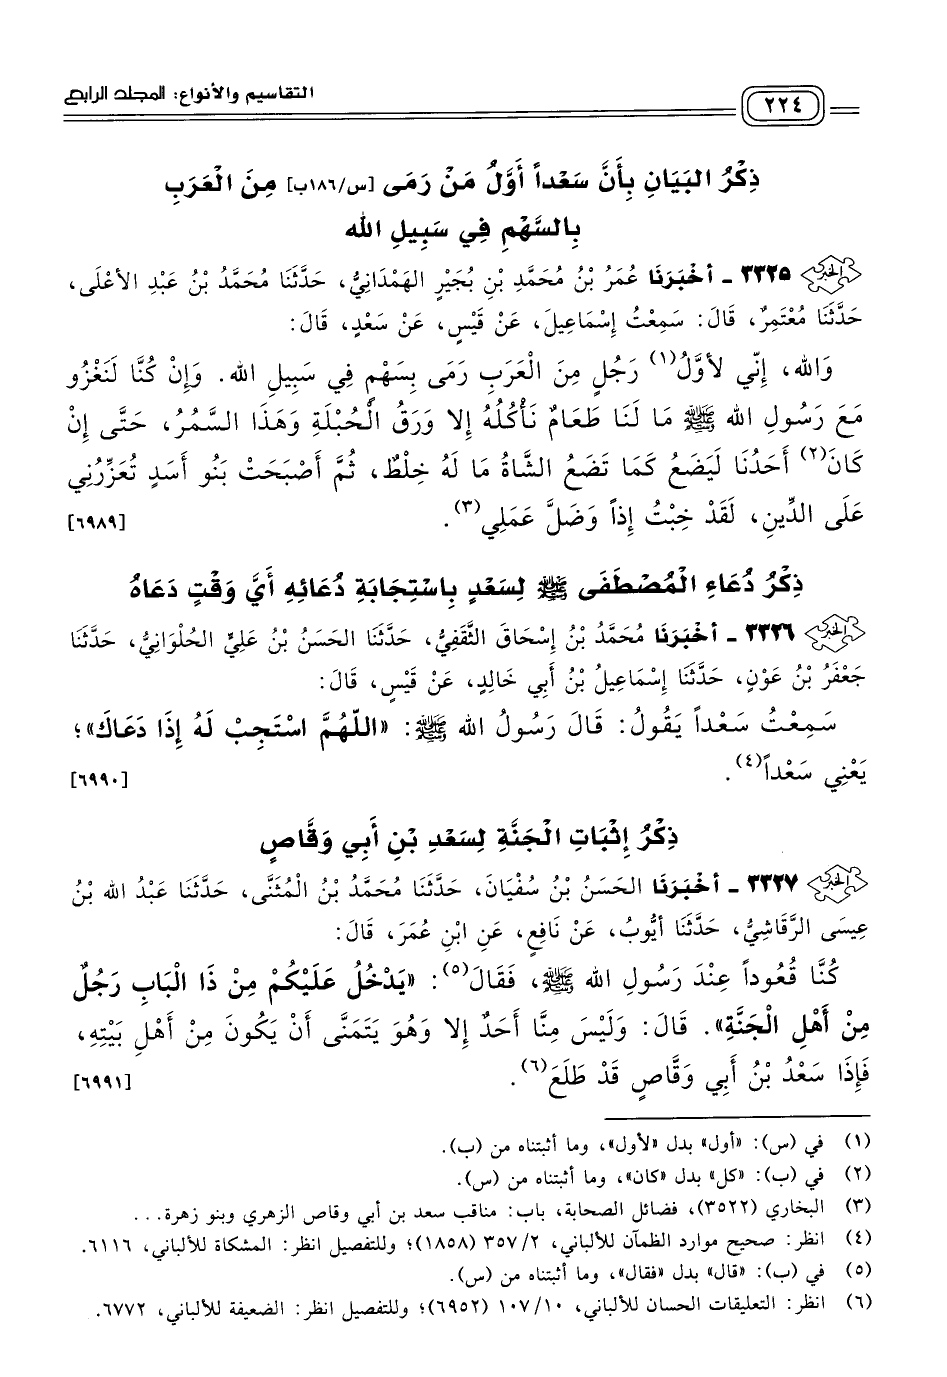 ٢٢٤ التقاسيم والأنواع: المجلد الرابع
ذِكْرُ البَيَانِ بِأَنَّ سَعْداً أَوَّلُ مَنْ رَمَى [س/١٨٦ب] مِنَ الْعَرَبِ
بِالسَّهْمِ فِي سَبِيلِ الله
٣٣٢٥ ـ أخْبَرَنَا عُمَرُ بْنُ مُحَمَّدِ بْنِ بُجَيْرٍ الهَمْدَانِيُّ، حَدَّثَنَا مُحَمَّدُ بْنُ عَبْدِ الأعْلَى،
حَدَّثَنَا مُعْتَمِرٌ، قَالَ: سَمِعْتُ إسْمَاعِيلَ، عَنْ قَيْسٍ، عَنْ سَعْدٍ، قَالَ:
وَالله، إنِّي لأوَّلُ(١) رَجُلٍ مِنَ الْعَرَبِ رَمَى بِسَهْمٍ فِي سَبِيلِ الله. وَإِنْ كُنَّا لَنَغْزُو
مَعَ رَسُولِ الله ﷺ مَا لَنَا طَعَامٌ نَأْكُلُهُ إلا وَرَقُ الْحُبْلَةِ وَهَذَا السَّمُرُ، حَتَّى إنْ
كَانَ(٢) أَحَدُنَا لَيَضَعُ كَمَا تَضَعُ الشَّاةُ مَا لَهُ خِلْطٌ، ثُمَّ أَصْبَحَتْ بَنُو أسَدٍ تُعَزِّرُنِي
عَلَى الدِّينِ، لَقَدْ خِبْتُ إذاً وَضَلَّ عَمَلِي(٣). [٦٩٨٩]
ذِكْرُ دُعَاءِ الْمُصْطَفَى ﷺ لِسَعْدٍ بِاسْتِجَابَةِ دُعَائِهِ أَيَّ وَقْتٍ دَعَاهُ
٣٣٢٦ ـ أخْبَرَنَا مُحَمَّدُ بْنُ إسْحَاقَ الثَّقَفِيُّ، حَدَّثَنَا الحَسَنُ بْنُ عَلِيٍّ الحُلْوَانِيُّ، حَدَّثَنَا
جَعْفَرُ بْنُ عَوْنٍ، حَدَّثَنَا إسْمَاعِيلُ بْنُ أَبِي خَالِدٍ، عَنْ قَيْسٍ، قَالَ:
سَمِعْتُ سَعْداً يَقُولُ: قَالَ رَسُولُ الله ﷺ: «اللّهُمَّ اسْتَجِبْ لَهُ إِذَا دَعَاكَ»؛
يَعْنِي سَعْداً(٤). [٦٩٩٠]
ذِكْرُ إثْبَاتِ الْجَنَّةِ لِسَعْدِ بْنِ أَبِي وَقَّاصٍ
٣٣٢٧ ـ أخْبَرَنَا الحَسَنُ بْنُ سُفْيَانَ، حَدَّثَنَا مُحَمَّدُ بْنُ الْمُثَنَّى، حَدَّثَنَا عَبْدُ الله بْنُ
عِيسَى الرَّقَاشِيُّ، حَدَّثَنَا أيُّوبُ، عَنْ نَافِعٍ، عَنِ ابْنِ عُمَرَ، قَالَ:
كُنَّا قُعُوداً عِنْدَ رَسُولِ الله ﷺ، فَقَالَ(٥): «يَدْخُلُ عَلَيْكُمْ مِنْ ذَا الْبَابِ رَجُلٌ
مِنْ أَهْلِ الْجَنَّةِ». قَالَ: وَلَيْسَ مِنَّا أَحَدٌ إلا وَهُوَ يَتَمَنَّى أَنْ يَكُونَ مِنْ أَهْلِ بَيْتِهِ،
فَإِذَا سَعْدُ بْنُ أَبِي وَقَّاصٍ قَدْ طَلَعَ(٦). [٦٩٩١]
(١) في (س): «أول» بدل «لأول»، وما أثبتناه من (ب).
(٢) في (ب): «كل» بدل «كان»، وما أثبتناه من (س).
(٣) البخاري (٣٥٢٢)، فضائل الصحابة، باب: مناقب سعد بن أبي وقاص الزهري وبنو زهرة...
(٤) انظر: صحيح موارد الظمآن للألباني، ٣٥٧/٢ (١٨٥٨)؛ وللتفصيل انظر: المشكاة للألباني، ٦١١٦.
(٥) في (ب): «قال» بدل «فقال»، وما أثبتناه من (س).
(٦) انظر: التعليقات الحسان للألباني، ١٠٧/١٠ (٦٩٥٢)؛ وللتفصيل انظر: الضعيفة للألباني، ٦٧٧٢.